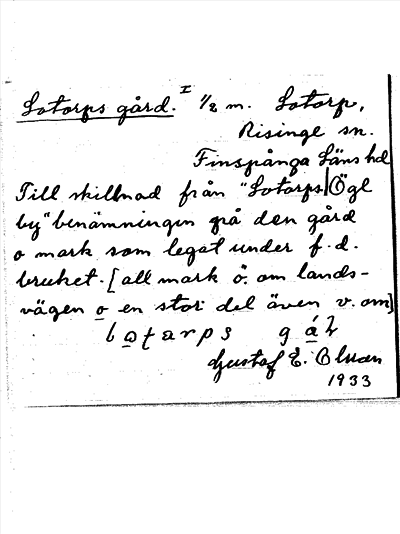 Lotorps gård. I 1/2 m. Lotorp,
Risinge sn.
Finspånga Läns hd
Till skillnad från "Lotorps Ögl
by" benämningen på den gård
o mark som legat under f.d.
bruket. [all mark ö. om lands-
vägen o en stor del även v. om]
Gustaf E. Olsson
1933